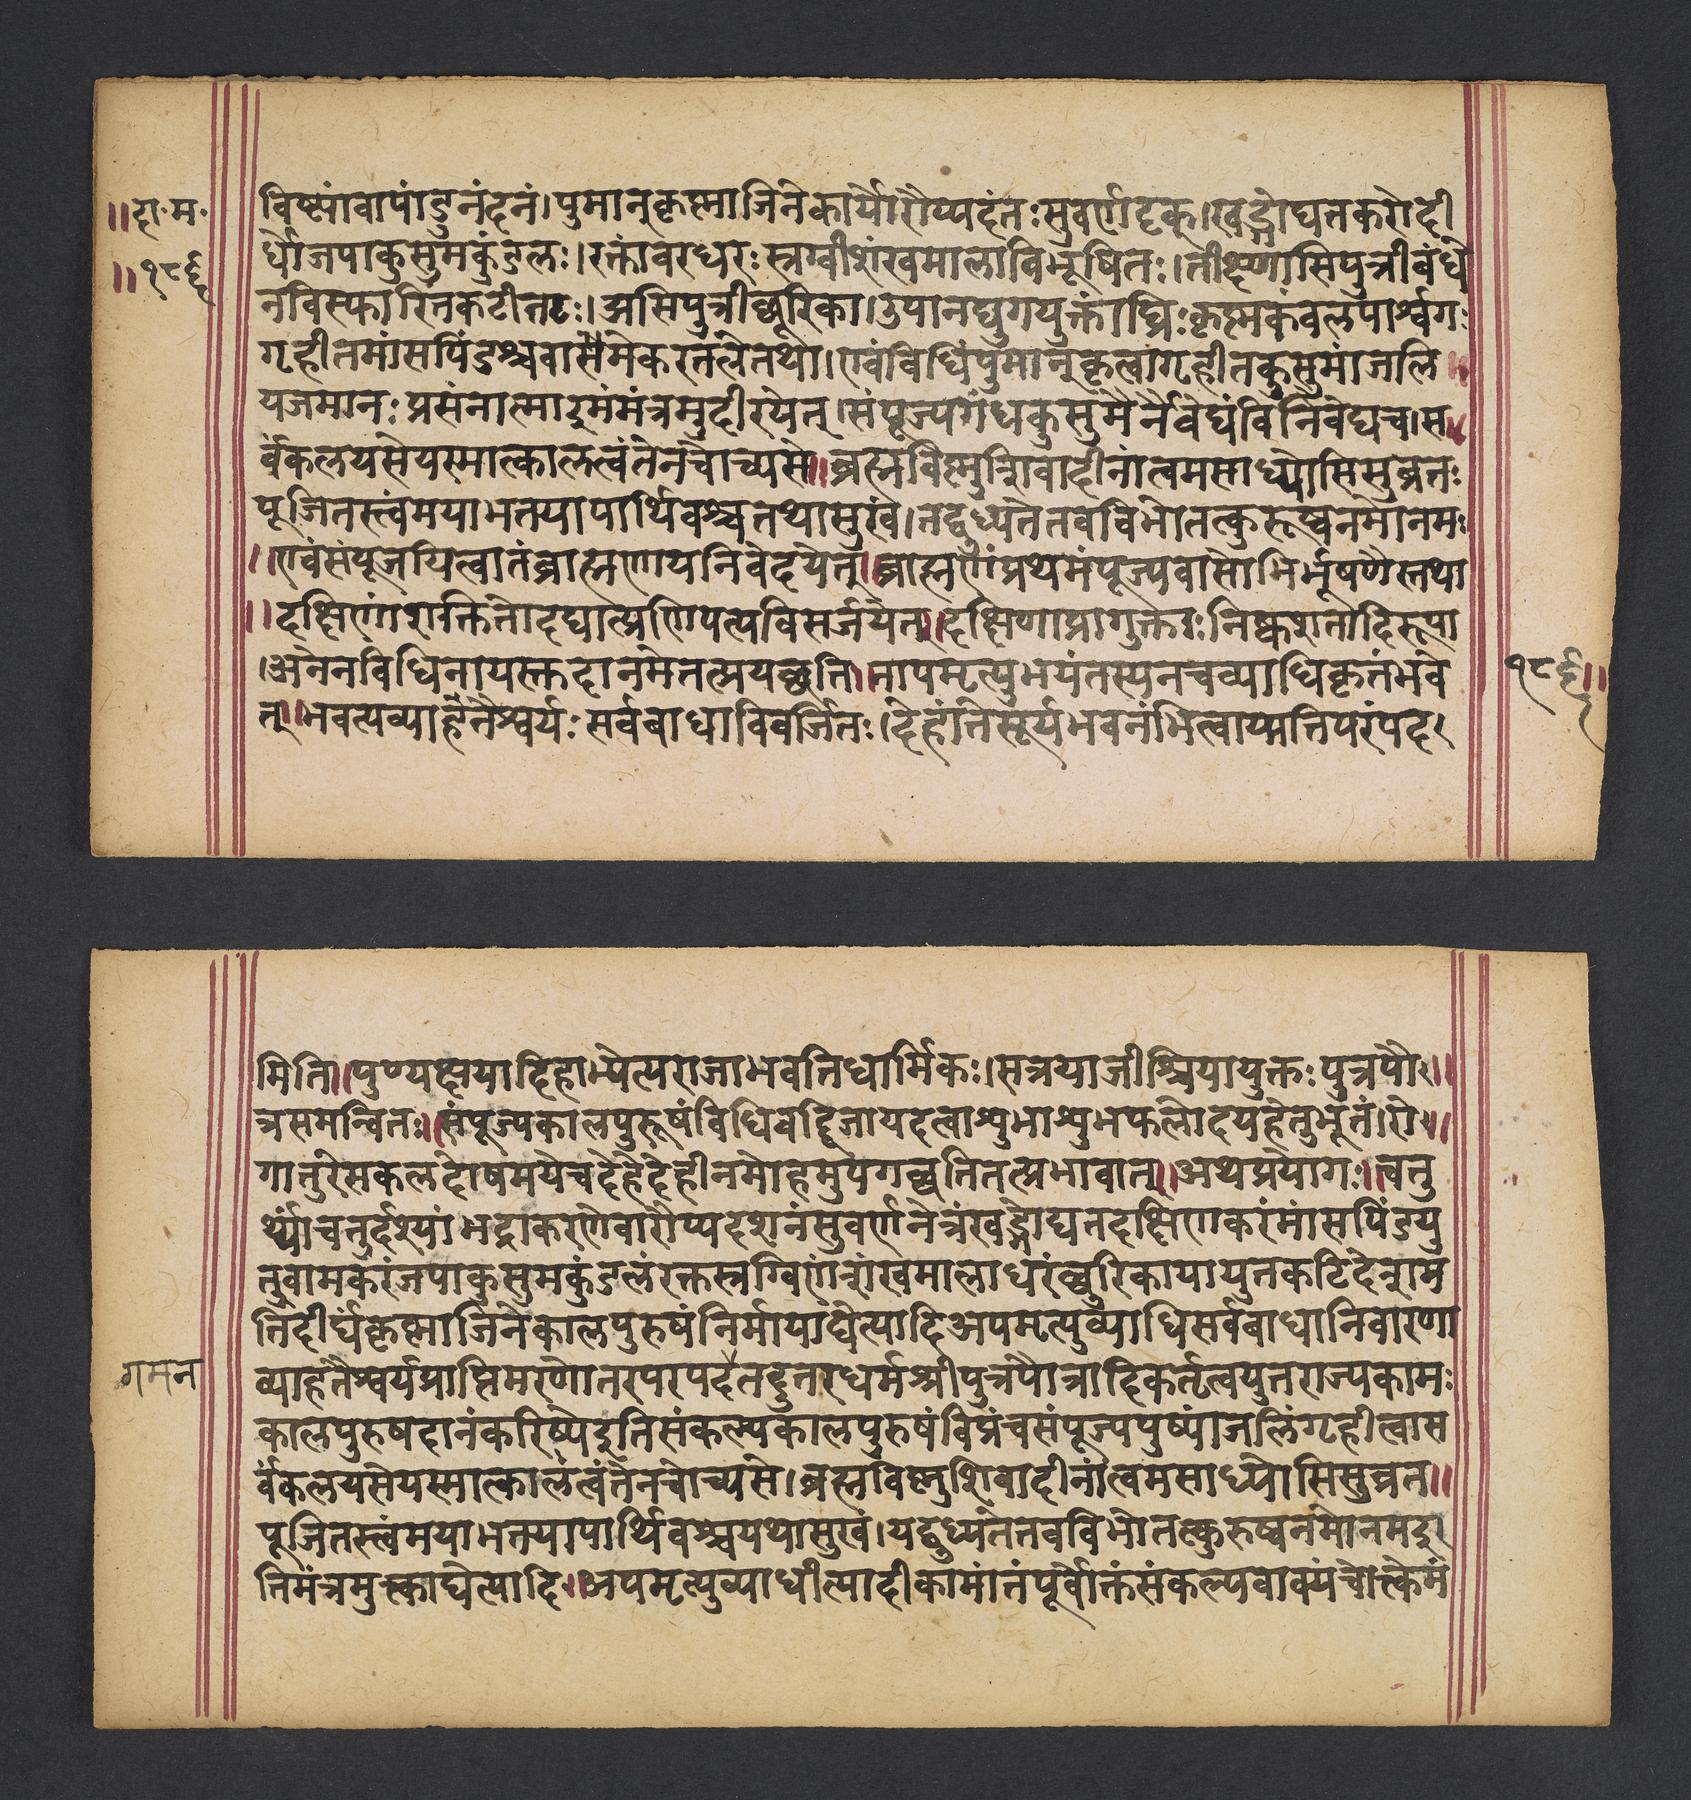 ॥दा॰म॰
॥१८६
विष्ट्यांवापांडुनंदनं।पुमान्कृष्णाजिनेकार्योरौप्यदंतःसुवर्णदृक्।खड्गोद्यतकरोदी
र्घोजपाकुसुमकुंडलः।रक्तांबरधरःस्त्रग्वीशंखमालाविभूषितः।तीक्ष्णासिपुत्रीबंधे
नविस्फारितकटीतटः।असिपुत्रीछूरिका।उपानद्युगयुक्तांघ्रिःकृष्णकंबलपार्श्वगः
गृहीतमांसपिंडश्चवामेकरतलेतथा।एवंविधिंपुमान्कृत्वागृहीतकुसुमांजलि
यजमानःप्रसंनात्माइमंमंत्रमुदीरयेत्।संपूज्यगंधकुसुमैर्नैवेद्यंविनिवेद्यच।स
र्वंकलयसेयस्मात्कालत्वंतेनचोच्यसे॥ब्रह्मविष्णुशिवादीनांत्वमसाध्योसिसुव्रतः
पूजितस्त्वंमयाभतयापार्थिवश्चतथासुखं।तद्बुध्यतेतवविभोतत्कुरूष्वनमोनमः
॥एवंसंपूजयित्वातंब्राह्मणायनिवेदयेत्॥ब्राह्मणंप्रथमंपूज्यवासोभिर्भूषणैस्तथा
॥दक्षिणांशक्तितोदद्यात्प्रणिपत्यविसर्जयेत्॥दक्षिणाप्रागुक्ताःनिष्कशतादिरूपा
।अनेनविधिनायस्क्तदानमेतत्प्रयछति॥नापमृत्युभयंतस्यनचव्याधिकृतंभवे
त्॥भवत्यव्याहतैश्वर्यःसर्वबाधाविवर्जितः।देहांतेसूर्यभवनंभित्वायातिपरंपद
१८६॥
मिति॥पुण्यक्षयादिहाभ्येत्यराजाभवतिधार्मिकः।सत्रयाजीश्रियायुक्तःपुत्रपौ॥
त्रसमन्वितः॥संपूज्यकालपुरूषंविधिवद्द्विजायदत्वाशुभाशुभफलोदयहेतुभूतं।रो॥
गातुरेसकलदोषमयेचदेहेदेहीनमोहमुपगच्छतितत्प्रभावात्॥अथप्रयोगः॥चतु
र्थ्यांचतुर्दश्यांभद्राकरणेवारौप्यदशनंसुवर्णनेत्रंखड्गोद्यतदक्षिणकरंमांसपिंडयु
तवामकरंजपाकुसुमकुंडलंरक्तस्त्रग्विणंशंखमालाधरंछुरिकायायुतकटिदेशम
तिदीर्घंकृष्णाजिनेकालपुरुषंनिर्मायाद्येत्यादिअपमृत्युव्याधिसर्वबाधानिवारणा
गमन
व्याहतैश्वर्यप्राप्तिमरणोतरपरपदतदुतरधर्मश्रीपुत्रपौत्रादिकर्तृत्वयुतराज्यकामः
कालपुरुषदानंकरिष्येइतिसंकल्प्यकालपुरुषंविप्रंचसंपूज्यपुष्पांजलिंगृहीत्वास
र्वंकलयसेयस्मात्कालत्वंतेनचोच्यसे।ब्रह्मविष्णुशिवादीनांत्वमसाध्योसिसुव्रत॥
पूजितस्त्वंमयाभतयापार्थिवश्चयथासुखं।यद्बुध्यतेतवविभोतत्कुरुष्वनमोनमइ
तिमंत्रमुक्त्काद्येत्यादि॥अपमृत्युव्याधीत्यादीकामांतंपूर्वोक्तंसंकल्पवाक्यंचोत्केमं